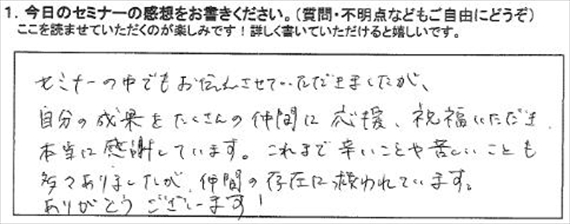 1. 今日のセミナーの感想をお書きください。（質問・不明点などもご自由にどうぞ）
ここを読ませていただくのが楽しみです！詳しく書いていただけると嬉しいです。
セミナーの中でもお伝えさせていただきましたが、
自分の成果をたくさんの仲間に応援、祝福いただき
本当に感謝しています。これまで辛いことや苦しいことも
多々ありましたが、仲間の存在に救われています。
ありがとうございます！